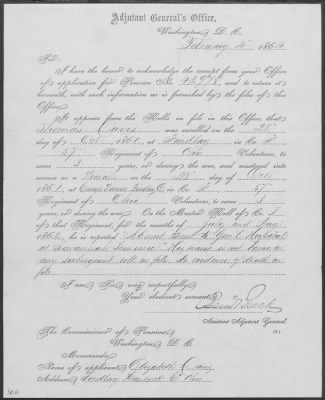 Adjutant General's Office,
Washington, D. C.
February 15" 1864
Sir:
I have the honor to acknowledge the receipt from your Office
of application for Pension No. and to return it
herewith with such information as is furnished by the files of this
Office.
It appears from the Rolls on file in this Office, that
Thomas was enrolled on the 28"
day of Oct 1861, at Findlay in Co.
57" Regiment of Ohio Volunteers, to
serve 3 years, or during the war, and mustered into
service as a Private on the 28" day of Oct
1861, at Camp Vance, Findlay, O. in Co. 57"
Regiment of Ohio Volunteers, to serve 3
years, or during the war. On the Muster Roll of Co.
of that Regiment, for the months of July and Aug
1862, he is reported "Absent Genl Hospital
at His name is not borne on
any subsequent rolls on file. No evidence of death on
file.
I am, Sir, very respectfully,
Your obedient servant,
Assistant Adjutant General.
The Commissioner of Pensions,
Washington, D. C.
Memoranda:
Name of applicant, Elizabeth
Address, Findlay Hancock Co Ohio